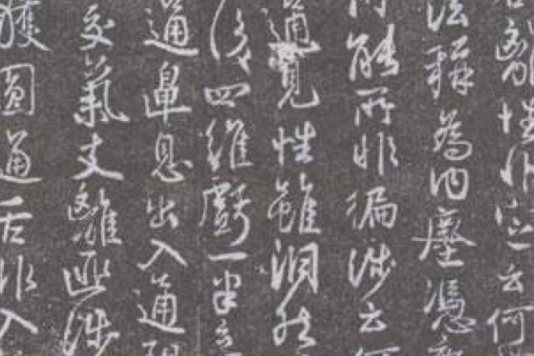 離性非定云何
法稱為內塵憑
能所非徧涉云
通見性雖洞然
後四維虧一半云
通鼻息出入通
交氣支離匪涉
獲圓通舌非入